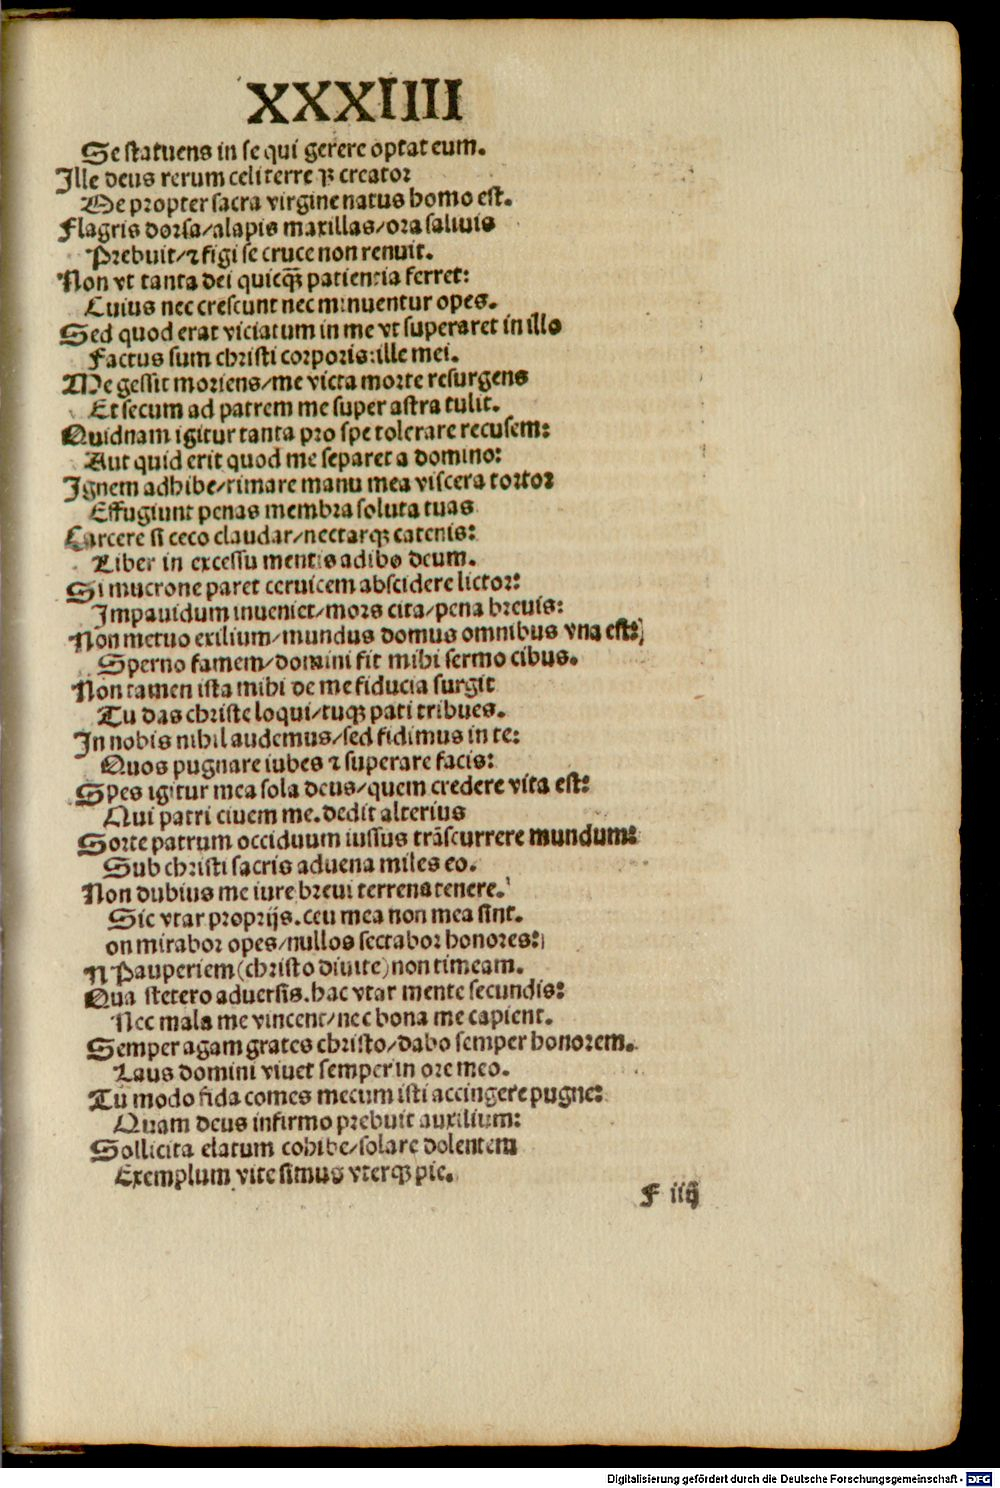 XXXIIII
Se statuens in se qui gerere optat eum.
Ille deus rerum celi terre qꝫ creator
Me propter sacra virgine natus homo est.
Flagris dorsa/alapis maxillas/ora saliuis
Prebuit/⁊ figi se cruce non renuit.
Non vt tanta dei quicqȝ̃ patiencia ferret:
Cuius nec crescunt nec minuentur opes.
Sed quod erat viciatum in me vt superaret in illo
Factus sum christi corporis:ille mei.
Me gessit moriens/me victa morte resurgens
Et secum ad patrem me super astra tulit.
Quidnam igitur tanta pro spe tolerare recusem:
Aut quid erit quod me separet a domino:
Ignem adhibe/rimare manu mea viscera tortor
Effugiunt penas membra soluta tuas
Carcere si ceco claudar/nectarqꝫ catenis:
Liber in excessu mentis adibo deum.
Si mucrone paret ceruicem abscidere lictor:
Impauidum inueniet/mors cita/pena breuis:
Non metuo exilium/mundus domus omnibus vna est:
Sperno famem/domini fit mihi sermo cibus.
Non tamen ista mihi de me fiducia surgit
Tu das christe loqui/tuqꝫ pati tribues.
In nobis nihil audemus/sed fidimus in te:
Quos pugnare iubes ⁊ superare facis:
Spes igitur mea sola deus/quem credere vita est:
Qui patri ciuem me.dedit alterius
Sorte patrum occiduum iussus trãscurrere mundum:
Sub christi sacris aduena miles eo.
Non dubius me iure breui terrena tenere.
Sic vtar proprijs.ceu mea non mea sint.
on mirabor opes/nullos sectabor honores:
N Pauperiem(christo diuite)non timeam.
Qua stetero aduersis.hac vtar mente secundis:
Nec mala me vincent/nec bona me capient.
Semper agam grates christo/dabo semper honorem.
Laus domini viuet semper in ore meo.
Tu modo fida comes mecum isti accingere pugne:
Quam deus infirmo prebuit auxilium:
Sollicita elatum cohibe/solare dolentem
Exemplum vite simus vterqꝫ pie.
F iiij
Digitalisierung gefördert durch die Deutsche Forschungsgemeinschaft - DFG